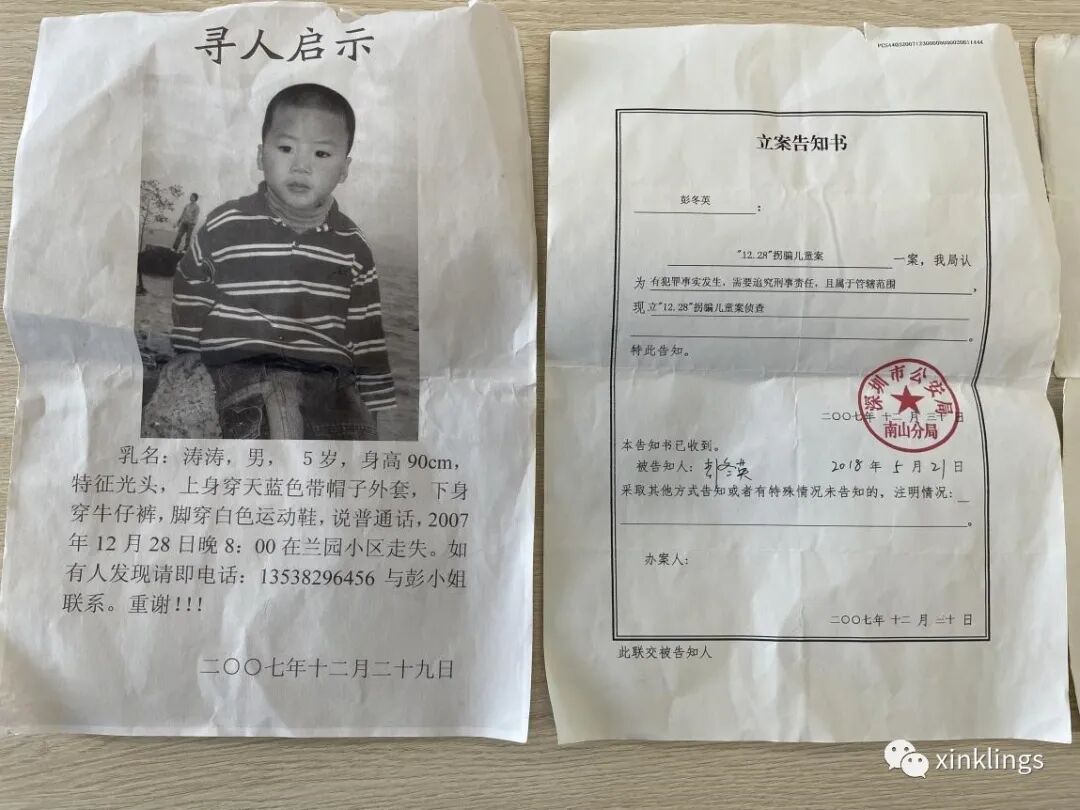 寻人启示
乳名：涛涛，男， 5岁，身高90cm，
特征光头，上身穿天蓝色带帽子外套，下身
穿牛仔裤，脚穿白色运动鞋，说普通话，2007
年12月28日晚8：00在兰园小区走失。如
有人发现请即电话：13538296456与彭小姐
联系。重谢!!!
二〇〇七年十二月二十九日
立案告知书
彭冬英：
"12.28"拐骗儿童案一案，我局认
为有犯罪事实发生，需要追究刑事责任，且属于管辖范围，
现立"12.28"拐骗儿童案侦查
。
特此告知。
深圳市公安局
南山分局
二〇〇七年十二月三十日
本告知书已收到。
被告知人：彭冬英 2018年5月21日
采取其他方式告知或者有特殊情况未告知的，注明情况：
。
办案人：
二〇〇七年十二月三十日
此联交被告知人
xinklings